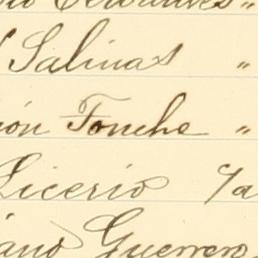 Cervantes "
Salinas "
ión Fonche "
Licerio Za
iano Guerrero